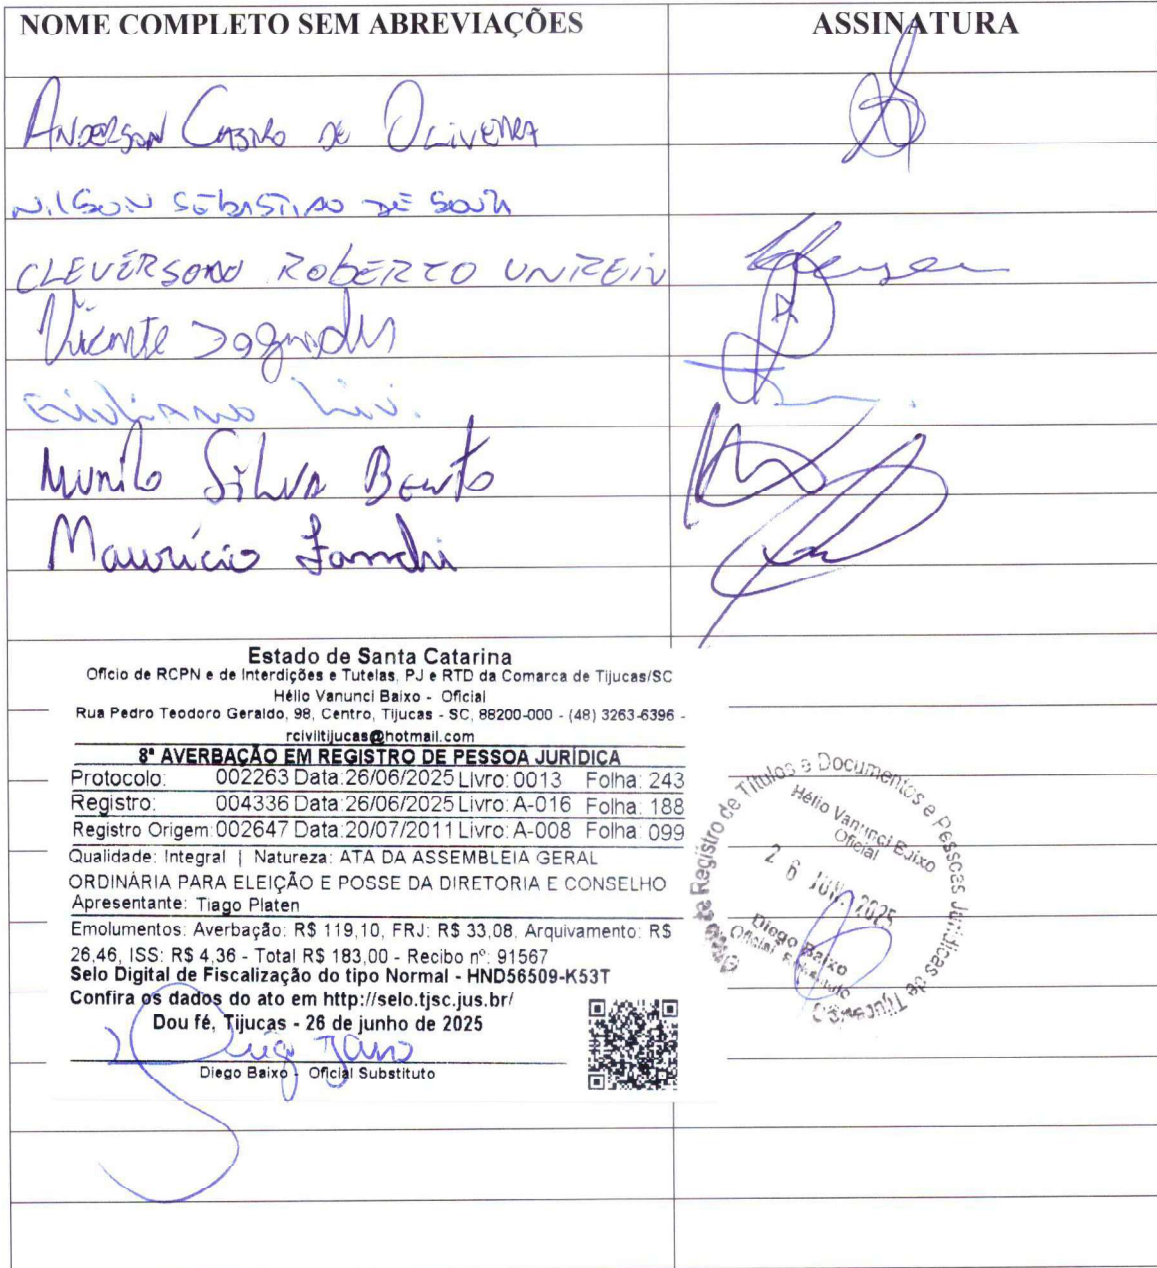 NOME COMPLETO SEM ABREVIAÇÕES ASSINATURA
ANDERSON CASTRO DE OLIVEIRA
NILSON SEBASTIAO DE SOUZA
CLEVERSOM ROBERTO UNREIN
Vicente
GIULIANO Livi.
Murilo Silva Bento
Maurício
Estado de Santa Catarina
Ofício de RCPN e de Interdições e Tutelas, PJ e RTD da Comarca de Tijucas/SC
Hélio Vanunci Baixo - Oficial
Rua Pedro Teodoro Geraldo, 98, Centro, Tijucas - SC, 88200-000 - (48) 3263-6396 -
rciviltijucas@hotmail.com
8ª AVERBAÇÃO EM REGISTRO DE PESSOA JURÍDICA
Protocolo: 002263 Data:26/06/2025 Livro: 0013 Folha: 243
Registro: 004336 Data:26/06/2025 Livro: A-016 Folha: 188
Registro Origem: 002647 Data:20/07/2011 Livro: A-008 Folha: 099
Qualidade: Integral | Natureza: ATA DA ASSEMBLEIA GERAL
ORDINÁRIA PARA ELEIÇÃO E POSSE DA DIRETORIA E CONSELHO
Apresentante: Tiago Platen
Emolumentos: Averbação: R$ 119,10, FRJ: R$ 33,08, Arquivamento: R$
26,46, ISS: R$ 4,36 - Total R$ 183,00 - Recibo nº: 91567
Selo Digital de Fiscalização do tipo Normal - HND56509-K53T
Confira os dados do ato em http://selo.tjsc.jus.br/
Dou fé, Tijucas - 26 de junho de 2025
Diego Baixo - Oficial Substituto
de Registro de Títulos e Documentos e Pessoas Jurídicas de Tijucas
Hélio Vanunci Baixo
Oficial
26 JUN. 2025
Diego Baixo
Oficial Substituto